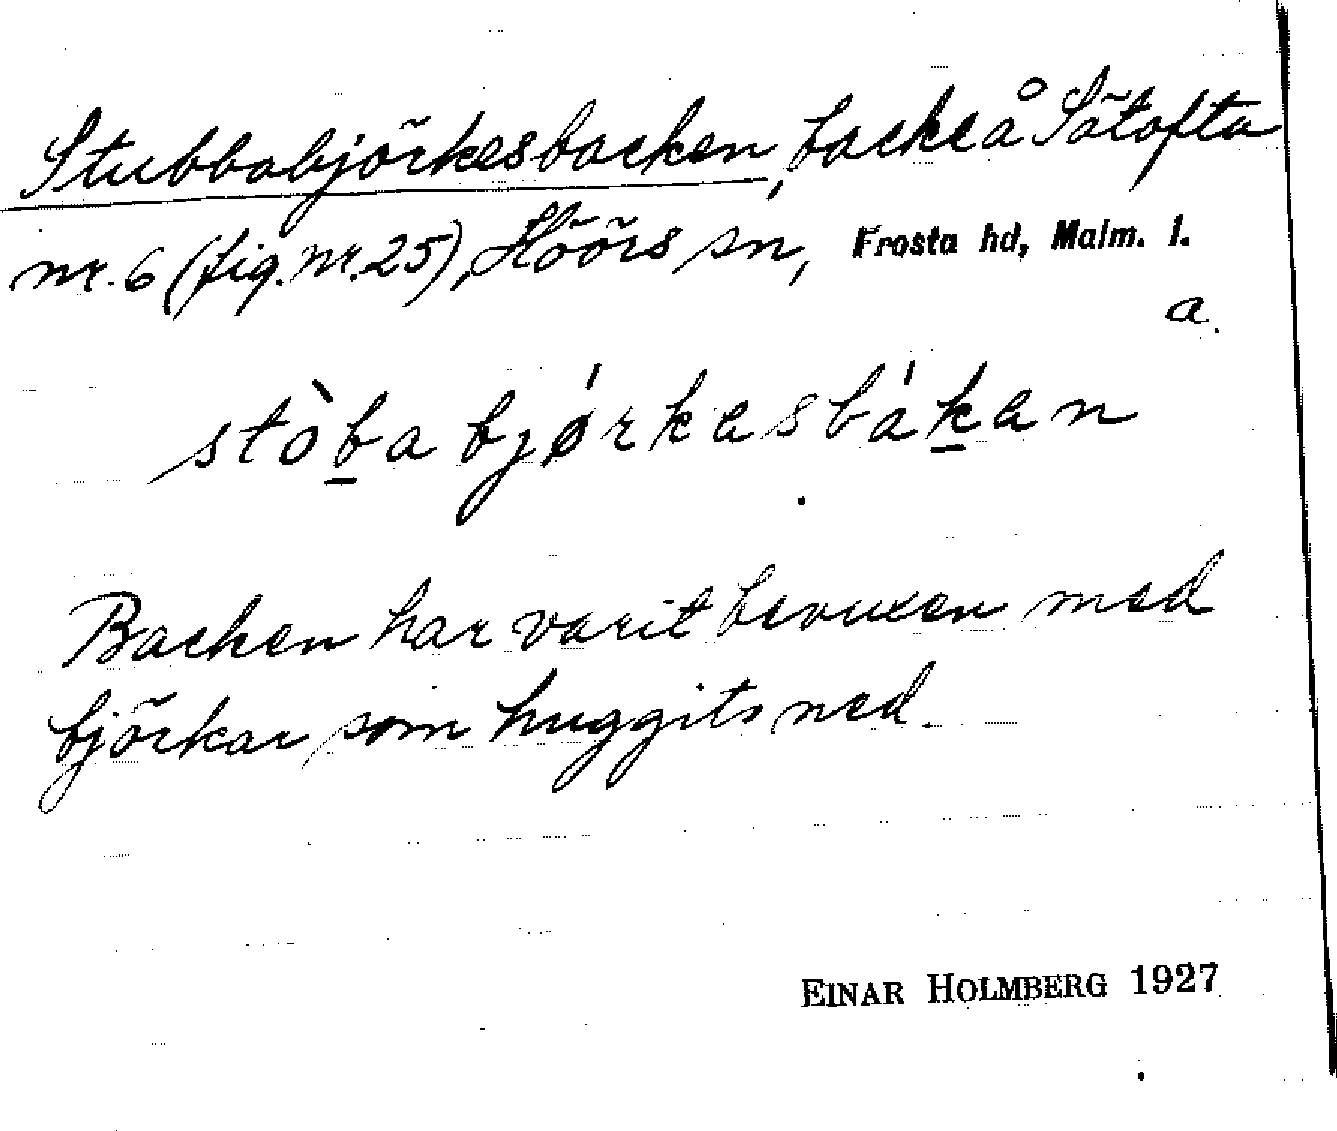 Stubbabjörkesbacken, backe å Sätofta
nr. 6 (fig. nr. 25), Höörs sn, Frosta hd, Malm. l.
a.
stòb̲a bjǿrkasbák̲an
Backen har varit bevuxen med
björkar som huggits ned.
EINAR HOLMBERG 1927